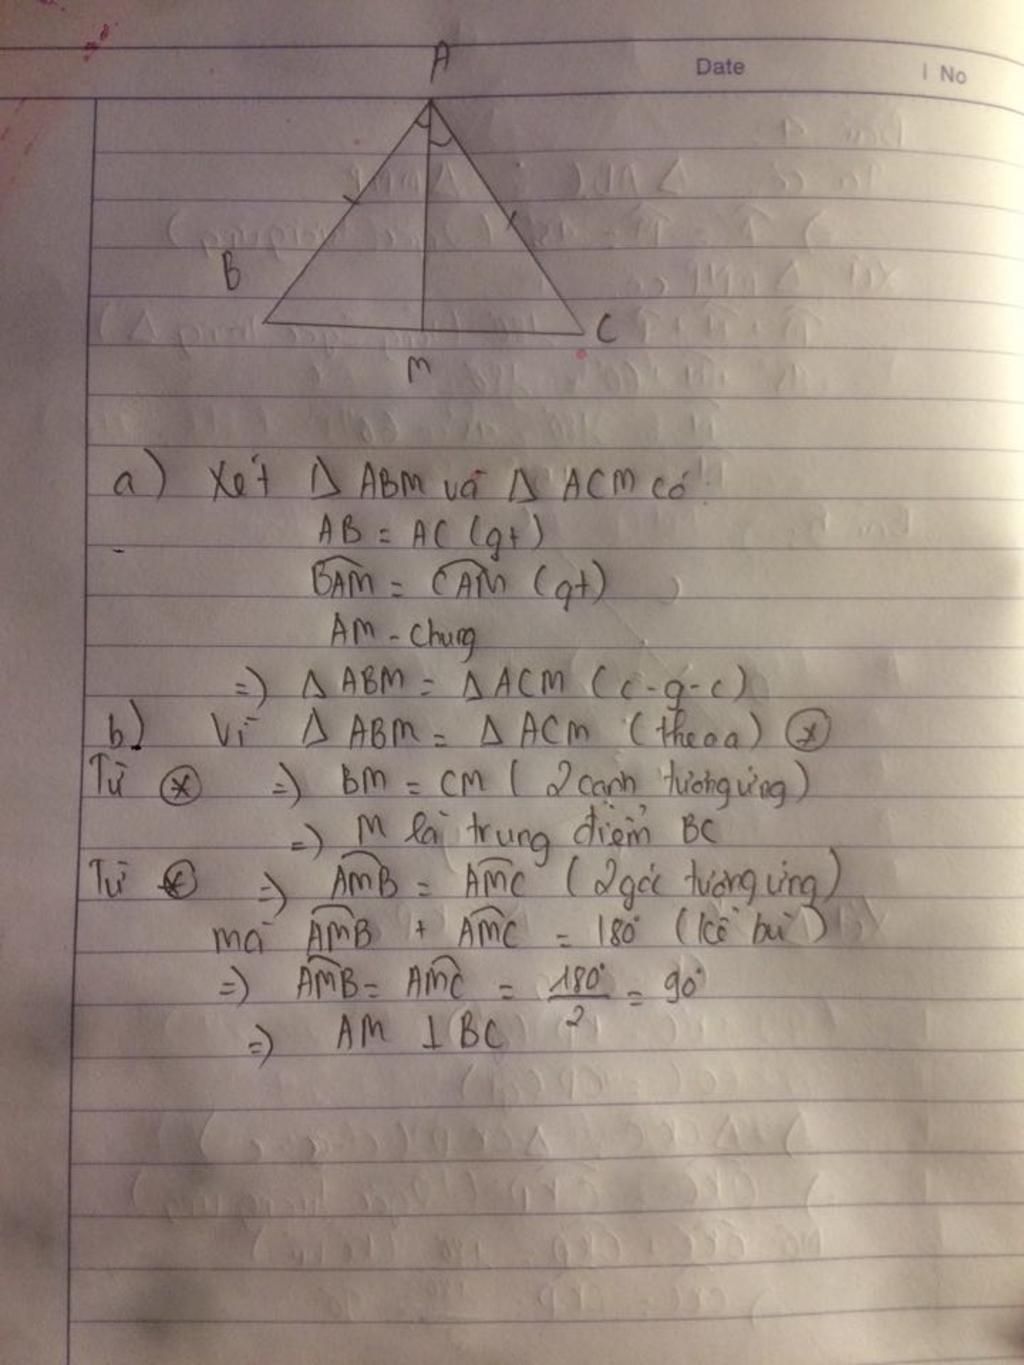 Date
No
A
B
C
M
a) Xét Δ ABM và Δ ACM có:
AB = AC (gt)
B̂AM = ĈAM (gt)
AM - chung
=) Δ ABM = Δ ACM (c-g-c)
b) Vì Δ ABM = Δ ACM (theo a) ⊛
Từ ⊛ =) BM = CM ( 2 cạnh tương ứng)
=) M là trung điểm BC
Từ ⊛ =) ÂMB = ÂMC ( 2 góc tương ứng)
mà ÂMB + ÂMC = 180° (kề bù)
=) ÂMB = ÂMC = 180°/2 = 90°
=) AM ⊥ BC